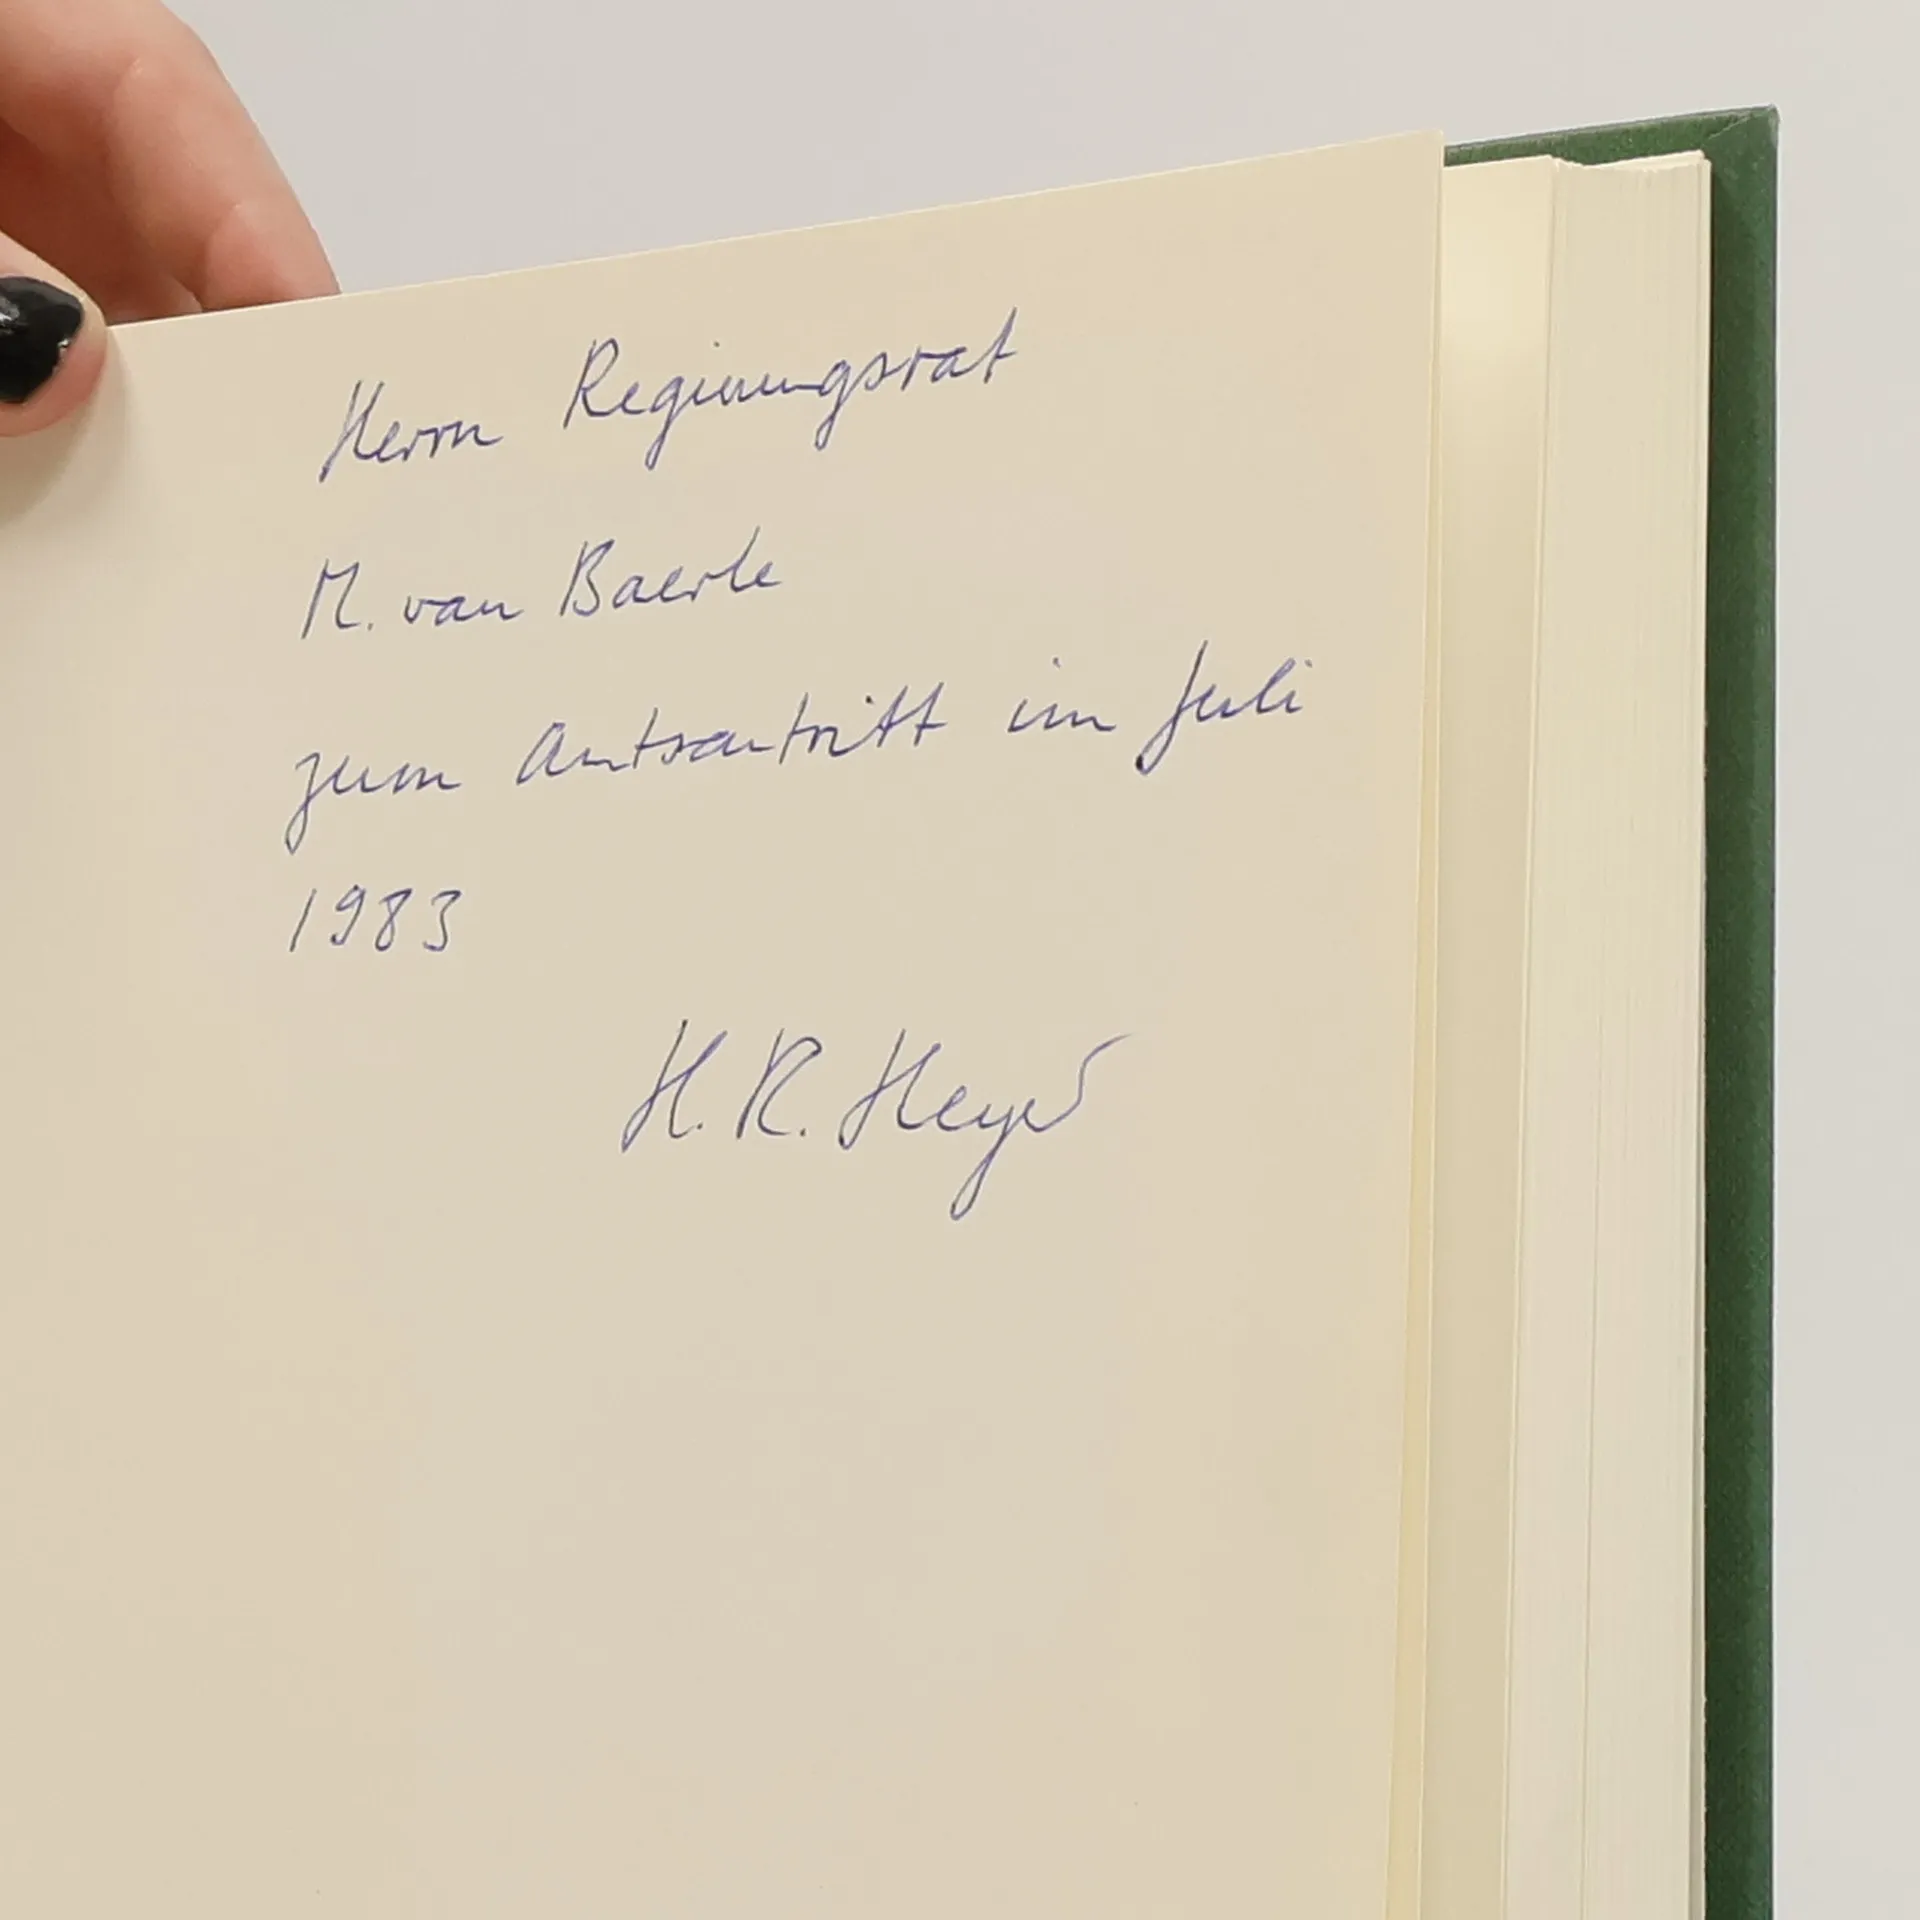 Herrn Regierungsrat
M. van Baerle
zum Amtsantritt im Juli
1983
H. R. Heyer